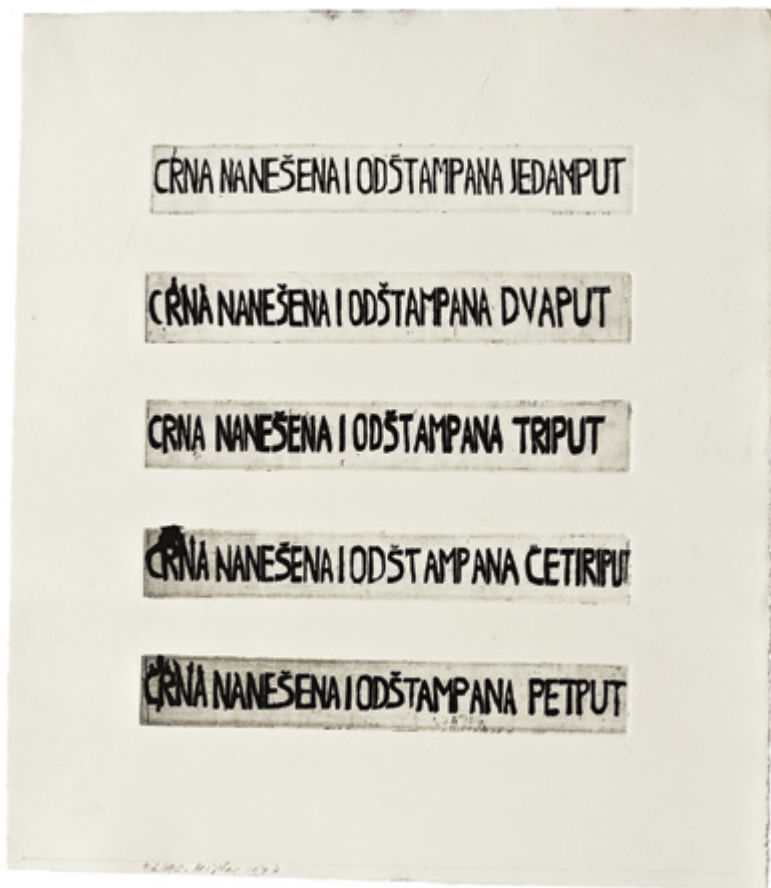 CRNA NANEŠENA I ODŠTAMPANA JEDAMPUT
CRNA NANEŠENA I ODŠTAMPANA DVAPUT
CRNA NANEŠENA I ODŠTAMPANA TRIPUT
CRNA NANEŠENA I ODŠTAMPANA ČETIRIPUT
CRNA NANEŠENA I ODŠTAMPANA PETPUT